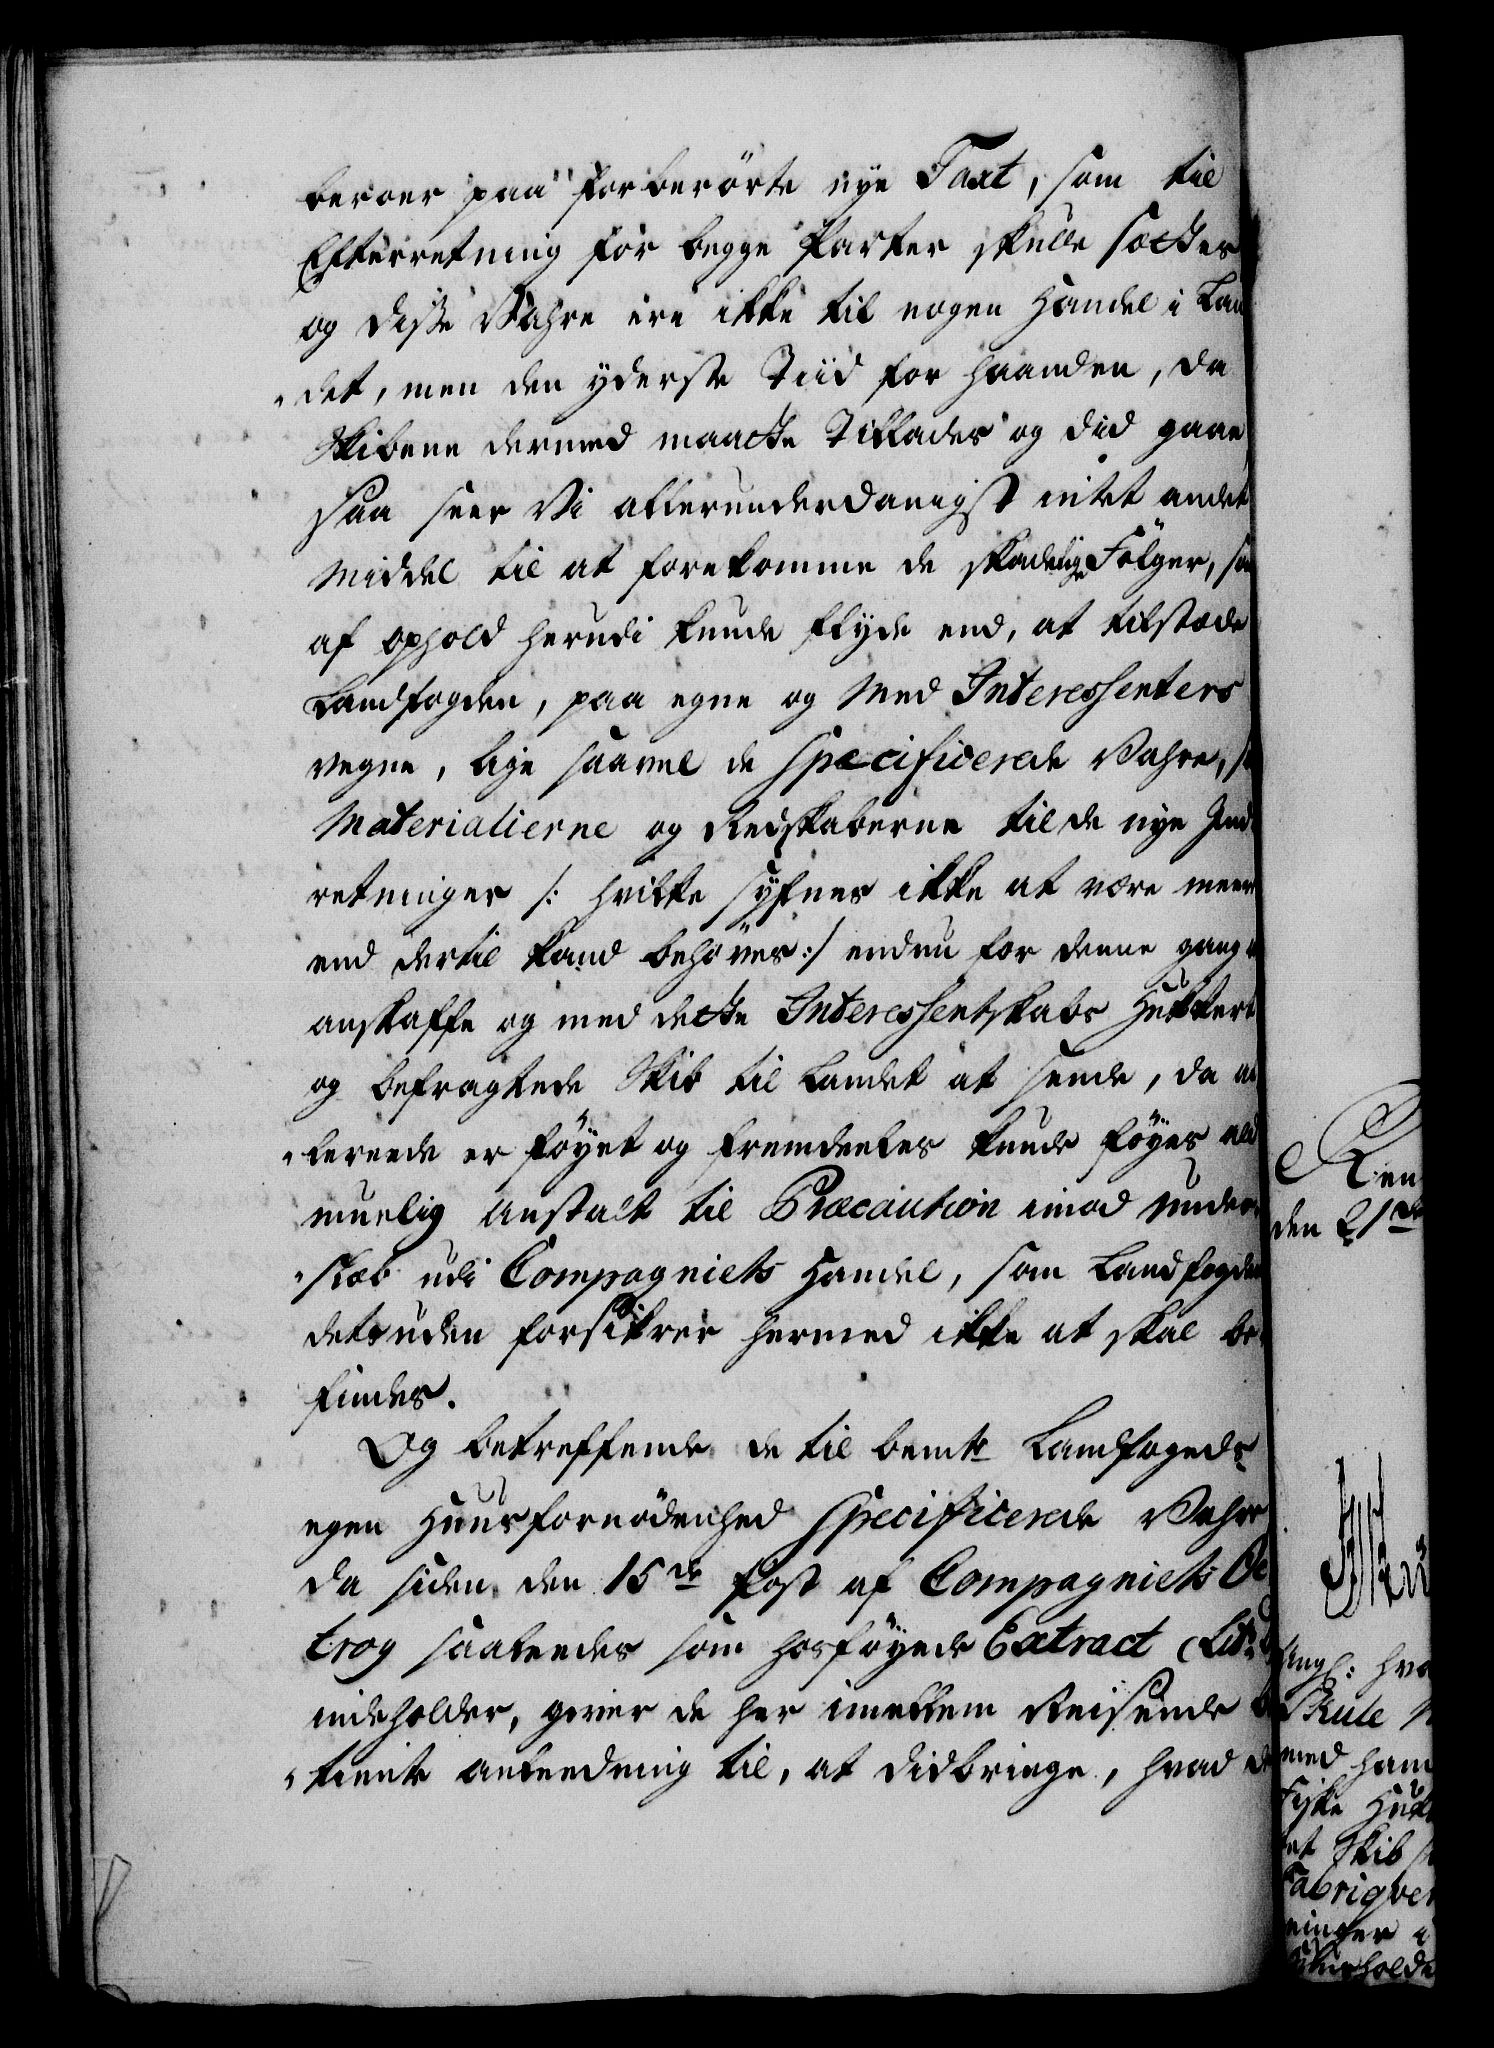 beroer paa forberörte nye Taxt, som til
Efterretning for begge Parter skulle sættes
og disse Vahre ere ikke til nogen Handel i Lan
det, men den yderste Tiid for haanden, da
Skibene dermed maatte Tillades og did gaae
saa seer Vi allerunderdanigst intet andet
Middel til at forekomme de skadelige Fölger, som
af ophold herudi kunde flyde end, at tilstæde
Landfogden, paa egne og Med Interessenters
vegne, lige saavel de specificerede Vahre, som
Materialierne og Redskaberne til de nye Ind
retninger /: hvilke syfnes ikke at være meere
end dertil kand behöves :/ endnu for denne gang
anskaffe og med dette Interessentskabs Hukkert
og befragtede Skib til Landet at sende, da al
lereede er föyet og fremdeeles kunde föyes ald
muelig Anstalt til Præcaution imod under
slæb udi Compagniets Handel, som Landfogden
desuden forsikrer hermed ikke at skal be
findes.
Og betreffende de til bemte Landfogeds
egen Huusfornödenhed specificerede Vahre
da siden den 15de Post af Compagniets Oc
troy saaledes som hosföyede Extract (Litr.
indeholder, giver de her imellem Reisende be
tiente anleedning til, at didbringe, hvad de
den 21de
Skule
med ham
Fiske Huk
et Skib
Fabriqver
ninger i